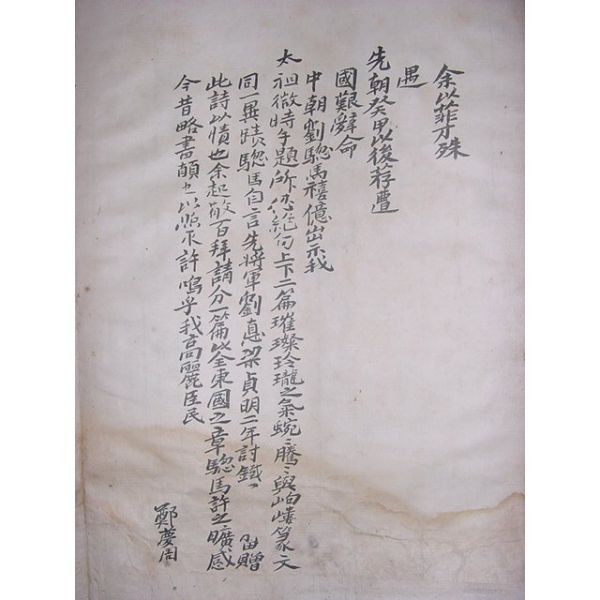 余以菲才殊
遇
先朝癸甲以後荐遭
國艱辥命
中朝劉駙馬禧億出示我
太祖微時手題所 絶句上下二篇璀璨玲瓏之氣蜿〻騰〻與岣嶁篆文
同一異蹟駙馬自言先將軍劉 梁貞明二年討鐵〻 留贈
此詩以 也余起敬百拜請分一篇以全東國之章駙馬許之曠感
今昔略書顛 以 不許嗚乎我高麗臣民
鄭夢周